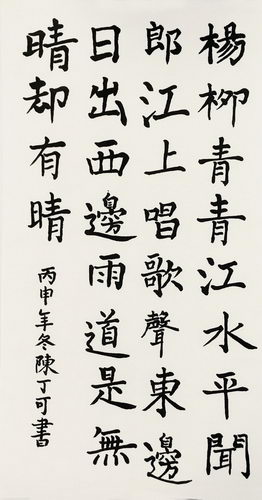 楊柳青青江水平聞
郎江上唱歌聲東邊
日出西邊雨道是無
晴却有晴
丙申年冬陳丁可書